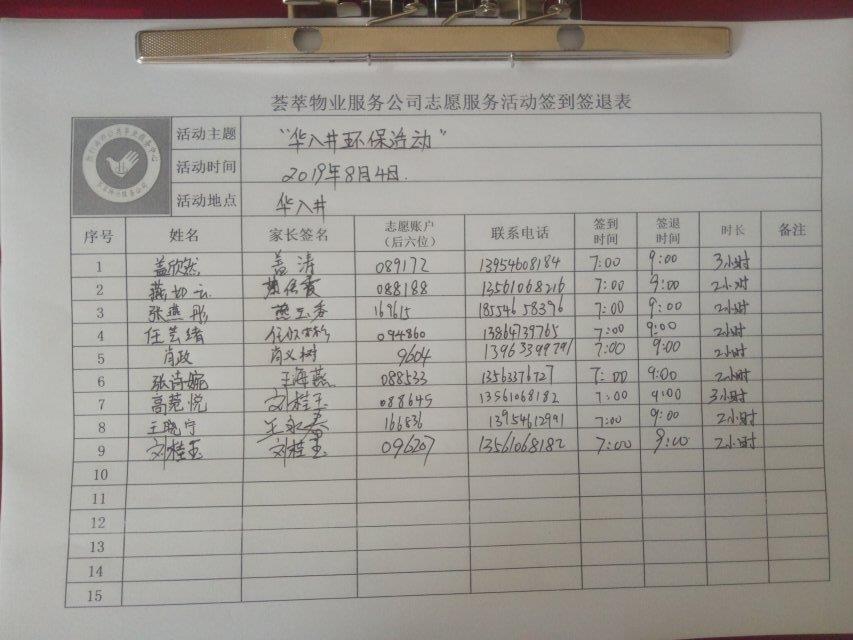 荟萃物业服务公司志愿服务活动签到签退表
活动主题 "华入井环保活动"
活动时间 2019年8月4日.
活动地点 华入井
序号 姓名 家长签名 志愿账户（后六位） 联系电话 签到时间 签退时间 时长 备注
1 盖欣然 盖清 089172 13954608184 7:00 9:00 3小时
2 燕如云 088188 13561068216 7:00 9:00 2小时
3 张燕彤 燕玉香 169615 18554658396 7:00 9:00 2小时
4 任芸绪 094860 13864739765 7:00 9:00 2小时
5 肖政 肖义树 9604 13963399791 7:00 9:00 2小时
6 张诗婉 王海燕 088533 13563376727 7:00 9:00 2小时
7 高菀悦 刘桂玉 088645 13561068182 7:00 9:00 3小时
8 王晓宁 王永春 166836 13954612991 7:00 9:00 2小时
9 刘桂玉 刘桂玉 096207 13561068182 7:00 9:00 2小时
10
11
12
13
14
15